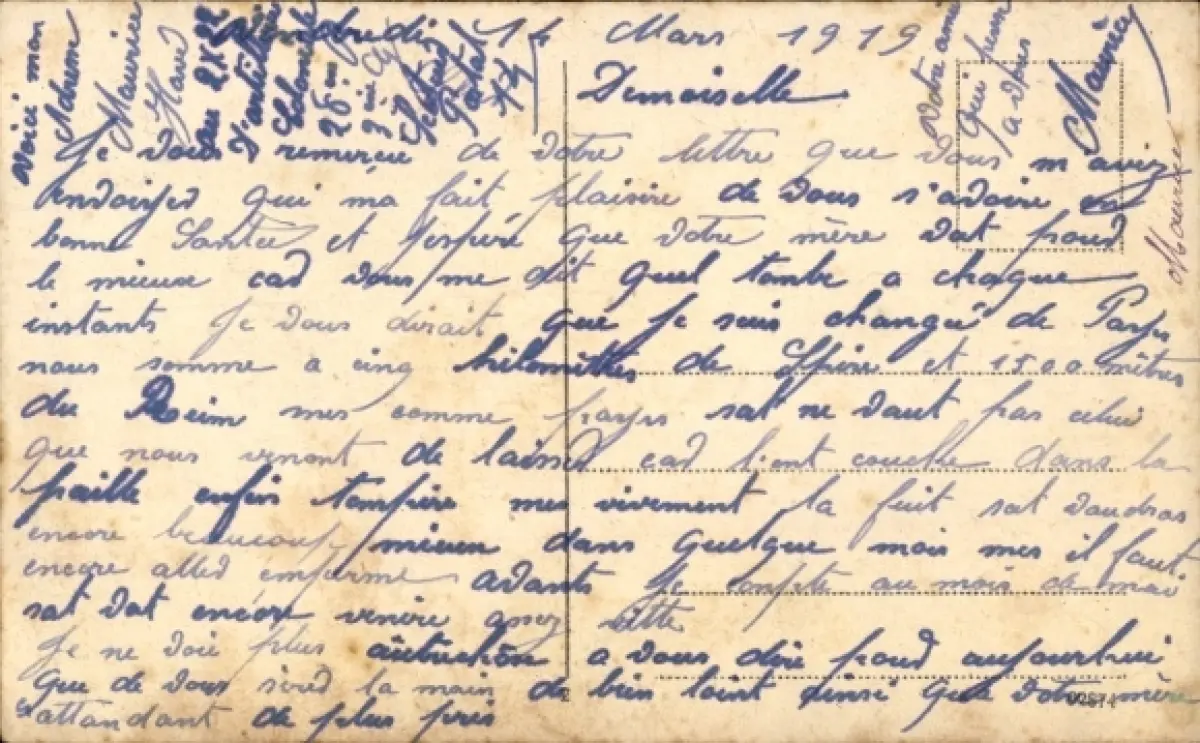 Vendredi 14 Mars 1919
Demoiselle
Je vous remercie de votre lettre que vous m'aviz
envoiyed qui m'a fait plaisire de vous s'avoire en
bonne Santée et j'espére que votre mère vat pour
le mieux cad vous me dit quel tombe a chaque
instants Je vous dirait que je suis changé de Payis
nous somme a cinq kilomêttes de Spire et 1500 mètres
du Reim mes comme payis sat ne vaut pas celui
que nous venont de laissed cad l'ont couche dans la
paille enfin tempire mes vivement la fuit sat vaudras
encore beaucoup mieux dans quelque mois mes il faut
encore alled enferme avants Je compte au mois de mai
sat vat encore venire assez vitte
Je ne voie plus autrechôse a vous dire pour aujourhui
que de vous sered la main de bien loint ainsi que votre mère
en attandant de plus près
Votre ami
qui pense
a vous
Maurice
Maurice
Voici mon
Adresse
Maurice
au 2X2
D'artillerie
Coloniale
26
Secteur
Postal
02674